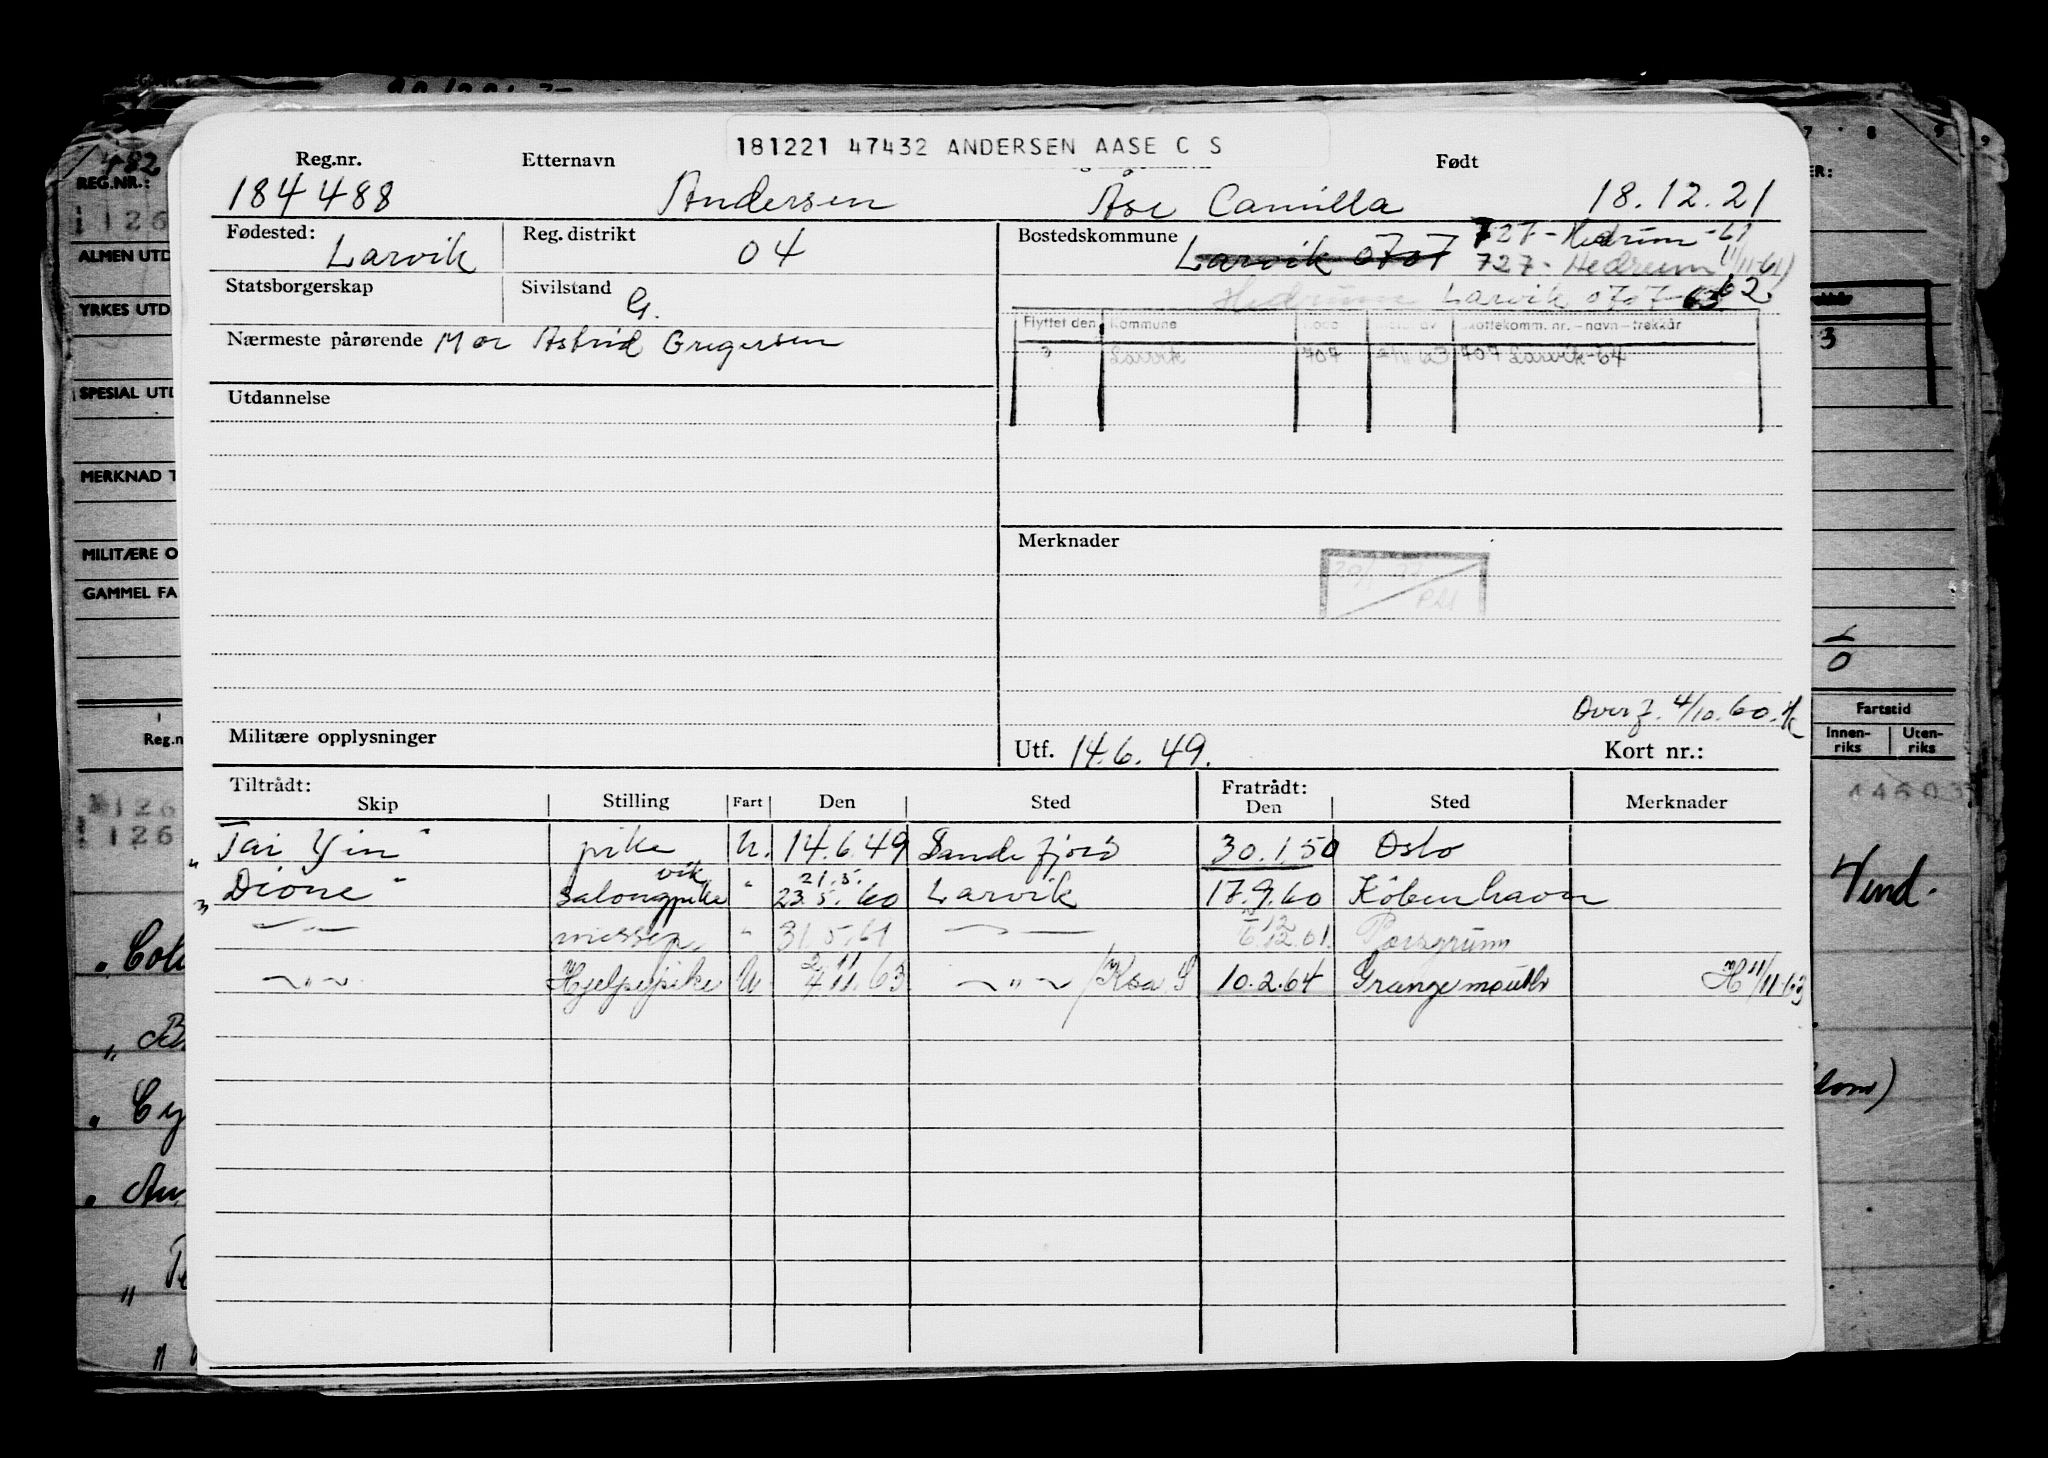 181221 47432 ANDERSEN AASE C S
Reg.nr. Etternavn Født
184488 Andersen Åse Camilla 18.12.21
Fødested: Larvik Reg. distrikt 04 Bostedskommune Larvik 0707 727 - Hedrum - 61
727 - Hedrum
Statsborgerskap Sivilstand G. Hedrum Larvik 0707
Flyttet den Kommune Skattekomm. nr. – navn – trekkår
3 Larvik 707 63 707 Larvik - 64
Nærmeste pårørende Mor Astrid Gregersen
Utdannelse
Merknader
Overf. 4/10.60.
Militære opplysninger Utf. 14.6.49. Kort nr.:
Tiltrådt: Fratrådt:
Skip Stilling Fart Den Sted Den Sted Merknader
"Tai Yin" pike U. 14.6.49 Sandefjord 30.1.50 Oslo
vik 21.5.
"Dione" salongpike " 23.5.60 Larvik 17.9.60 København
— " — messep. " 31.5.61 — " — 12.61. Porsgrunn
— " — Hjelpepike U 11.63 — " — 10.2.64 Grangemouth 11/11-63
REG.NR.:
126
ALMEN UTD
YRKES UTD
3
SPESIAL UTD
MERKNAD T
MILITÆRE O
GAMMEL FA
0
1 Fartstid
Reg.n Innenriks Utenriks
126
126